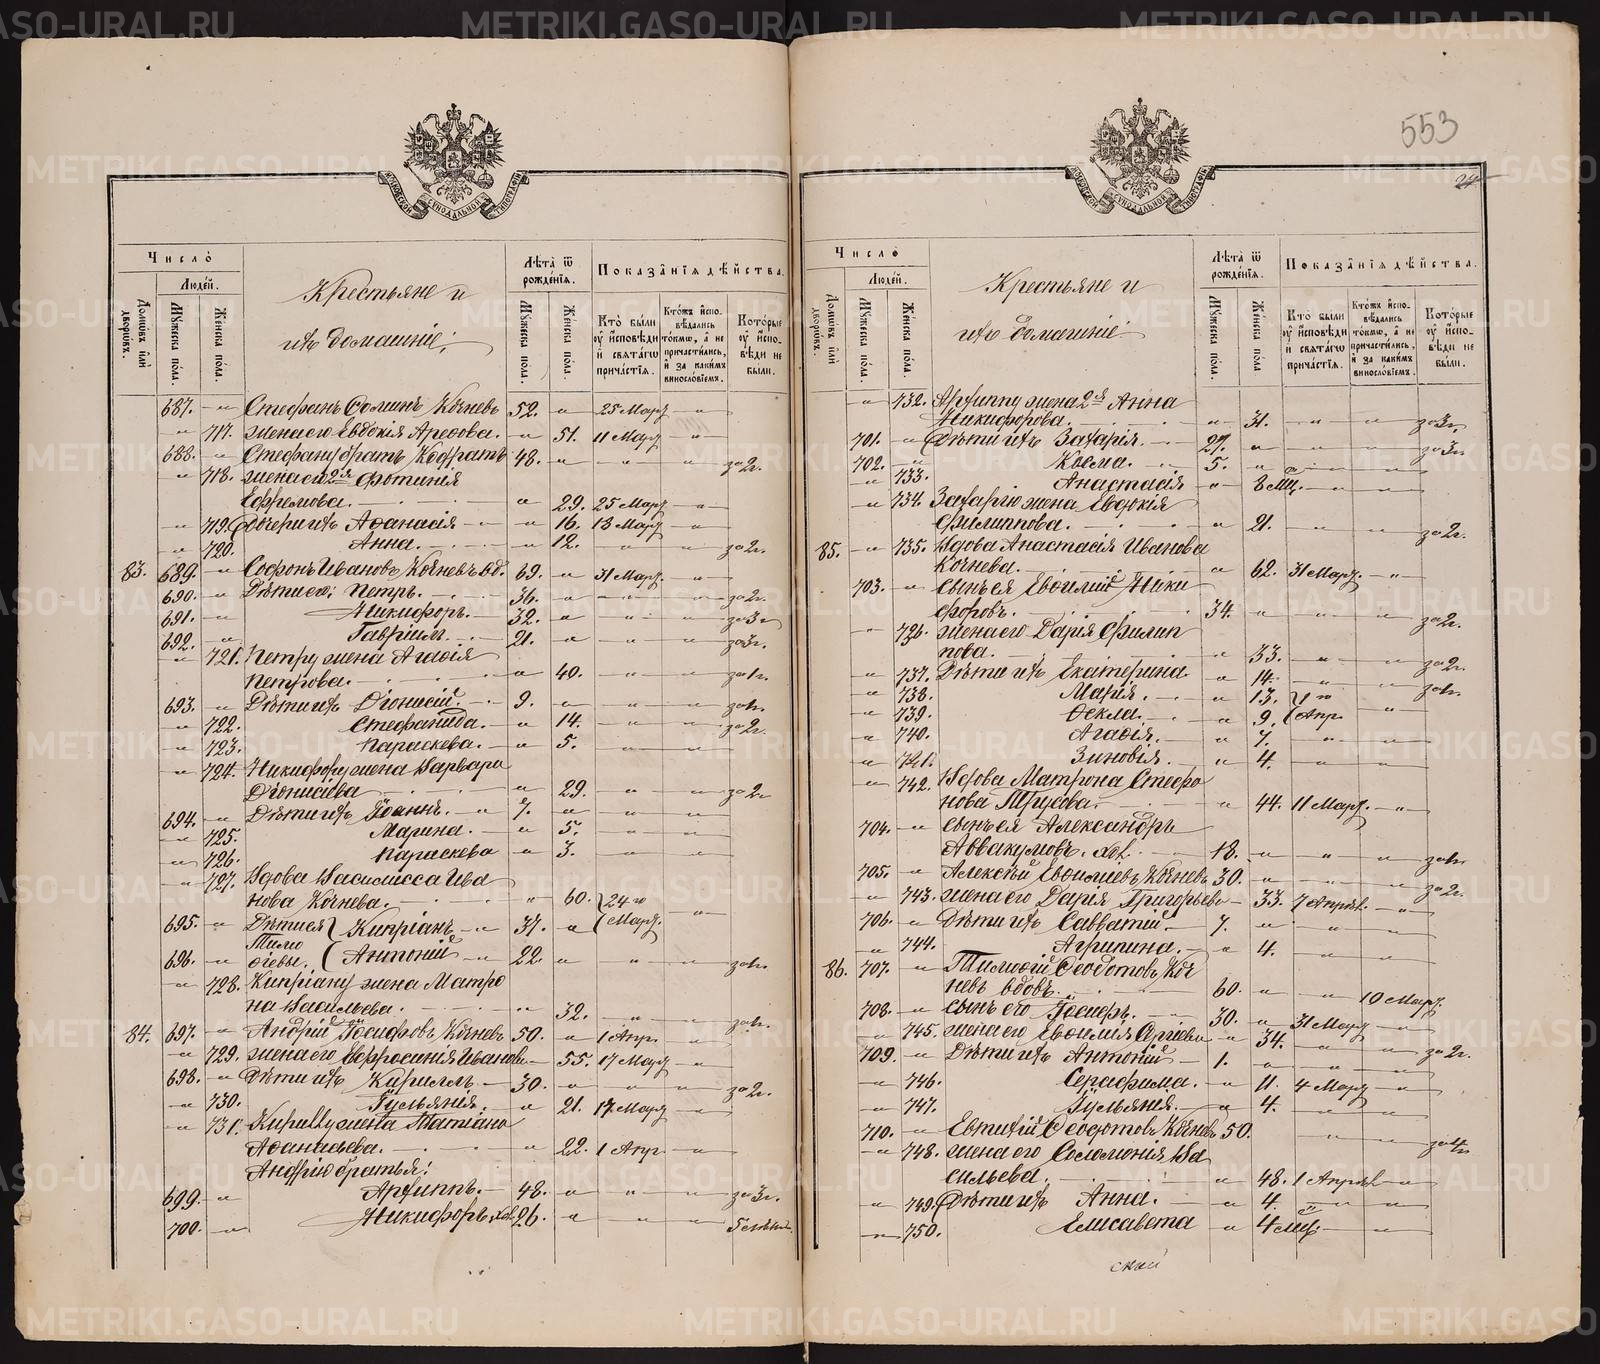 553
27
МОСКОВСКОЙ СѴНОДАЛЬНОЙ ТИПОГРАФІИ
Число
Людей.
Домовъ или дворовъ.
Мужеска пола.
Женска пола.
Крестьяне и
ихъ домашніе:
Лѣта ѿ рожденія.
Мужеска пола.
Женска пола.
Показанія дѣйства.
Кто были у исповѣди и святаго причастія.
Ктожъ исповѣдались токмо, а не причастились, и за какимъ винословіемъ.
Которые у исповѣди не были.
687. — " Стефанъ Ѳоминъ Кочневъ 52. " 25 Март. — "
" 717. жена его Евдокія Ареѳова. — " 51. 11 Март. — "
688. — " Стефану братъ Кодратъ 48. — " — " — " за 2 г.
" 718. жена его 2я Фотинія
Ефремова. — " 29. 25 Март. — "
" 719. Дочери ихъ Аѳанасія — " 16. 18 Март. — "
" 720. Анна. — " 12. " — " за 2 г.
83. 689. — " Софонъ Ивановъ Кочневъ вд. 69. " 31 Март. — "
690. — " Дѣти его: Петръ. 36. " — " — " за 2 г.
691. — " Никифоръ. — 32. " — " — " за 3 г.
692. — " Гавріилъ. — 21. " — " — " за 3 г.
" 721. Петру жена Агафія
Петрова. — " 40. " — " за 1 г.
693. — " Дѣти ихъ Діонисій. — 9. " — " — " за 1 г.
" 722. Стефанида. — " 14. " — " за 2 г.
" 723. Параскева. — " 5. " — "
" 724. Никифору жена Варвара
Діонисіева — " 29. " — " за 2 г.
694. — " Дѣти ихъ Іоаннъ. — " 7. " — " — "
" 725. Марина. — " 5. " — "
" 726. Параскева — " 3. — " — "
" 727. Вдова Василисса Ива
нова Кочнева. — " 60. 24 го
Март. — "
695. — " Дѣти ея Кипріанъ — " 37. "
Тимо
696. — " ѳіевы. Антоній — " 22. " — " — " за 1 г.
" 728. Кипріану жена Матро
на Васильева. — " 32. " — " за 1 г.
84. 697. — " Андрій Іосифовъ Кочневъ 50. " 1 Апр. — "
" 729. жена его Евфросинія Иванова — " 55. 17 Март. — "
698. — " Дѣти ихъ Кириллъ. — 30. " — " — " за 2 г.
" 730. Іульянія. — " 21. 17 Март. — "
" 731. Кириллу жена Татіана
Аѳанасьева. — " 22. 1 Апр. — "
Андрію братья:
699. — " Архиппъ. — 48. " — " — " за 3 г.
700. — " Никифоръ хол. 26. " — " — "
Число
Людей.
Домовъ или дворовъ.
Мужеска пола.
Женска пола.
Крестьяне и
ихъ домашніе:
Лѣта ѿ рожденія.
Мужеска пола.
Женска пола.
Показанія дѣйства.
Кто были у исповѣди и святаго причастія.
Ктожъ исповѣдались токмо, а не причастились, и за какимъ винословіемъ.
Которые у исповѣди не были.
" 732. Архиппу жена 2я Анна
Никифорова. — " 31. " — " за 3 г.
701. — " Дѣти ихъ Захарія. — 27. " — " — " за 3 г.
702. — " Косма. — 5. " — " — "
" 733. Анастасія — " 8 мц. — " — "
" 734. Захарію жена Евдокія
Филиппова. — " 21. " — " за 2 г.
85. " 735. Вдова Анастасія Иванова
Кочнева. — " 62. 31 Март. — "
703. — " сынъ ея Евѳимій Ники
форовъ. — 34. " — " — " за 2 г.
" 736. жена его Дарія Филип
пова. — " 33. " — " за 2 г.
" 737. Дѣти ихъ Екатерина — " 14. " — " за 1 г.
" 738. Марія. — " 13. 1 го
" 739. Ѳекла. — " 9. Апр. — "
" 740. Агафія. — " 7. " — "
" 741. Зиновія. — " 4. — " — "
" 742. Вдова Матрона Стефа
нова Трусова. — " 44. 11 Март. — "
704. — " сынъ ея Александръ
Аввакумовъ. хол. — 18. " — " — " за 1 г.
705. — " Алексѣй Евѳиміевъ Кочневъ 30. " — " — " за 2 г.
" 743. жена его Дарія Григорьева — 33. 7 Апрѣл. — "
706. — " Дѣти ихъ Савватій. — 7. " — " — "
" 744. Агрипина. — " 4. — " — "
86. 707. — " Тимоѳій Ѳеодотовъ Коч
невъ вдовъ. — 60. " — " 10 Март.
708. — " сынъ его Іосифъ. — 30. " 31 Март. — "
" 745. жена его Евѳимія Сергіева — " 34. " — " за 2 г.
709. — " Дѣти ихъ Антоній — 1. " — " — "
" 746. Серафима. — " 11. 4 Март. — "
" 747. Іульянія. — " 4. — " — "
710. — " Евтихій Ѳеодотовъ Кочневъ 50. — " — " за 4 г.
" 748. жена его Соломонія Ва
сильева. — " 48. 1 Апрѣл. — "
" 749. Дѣти ихъ Анна. — " 4. — " — "
" 750. Елисавета " 4 мц. — " — "
ской
METRIKI.GASO-URAL.RU